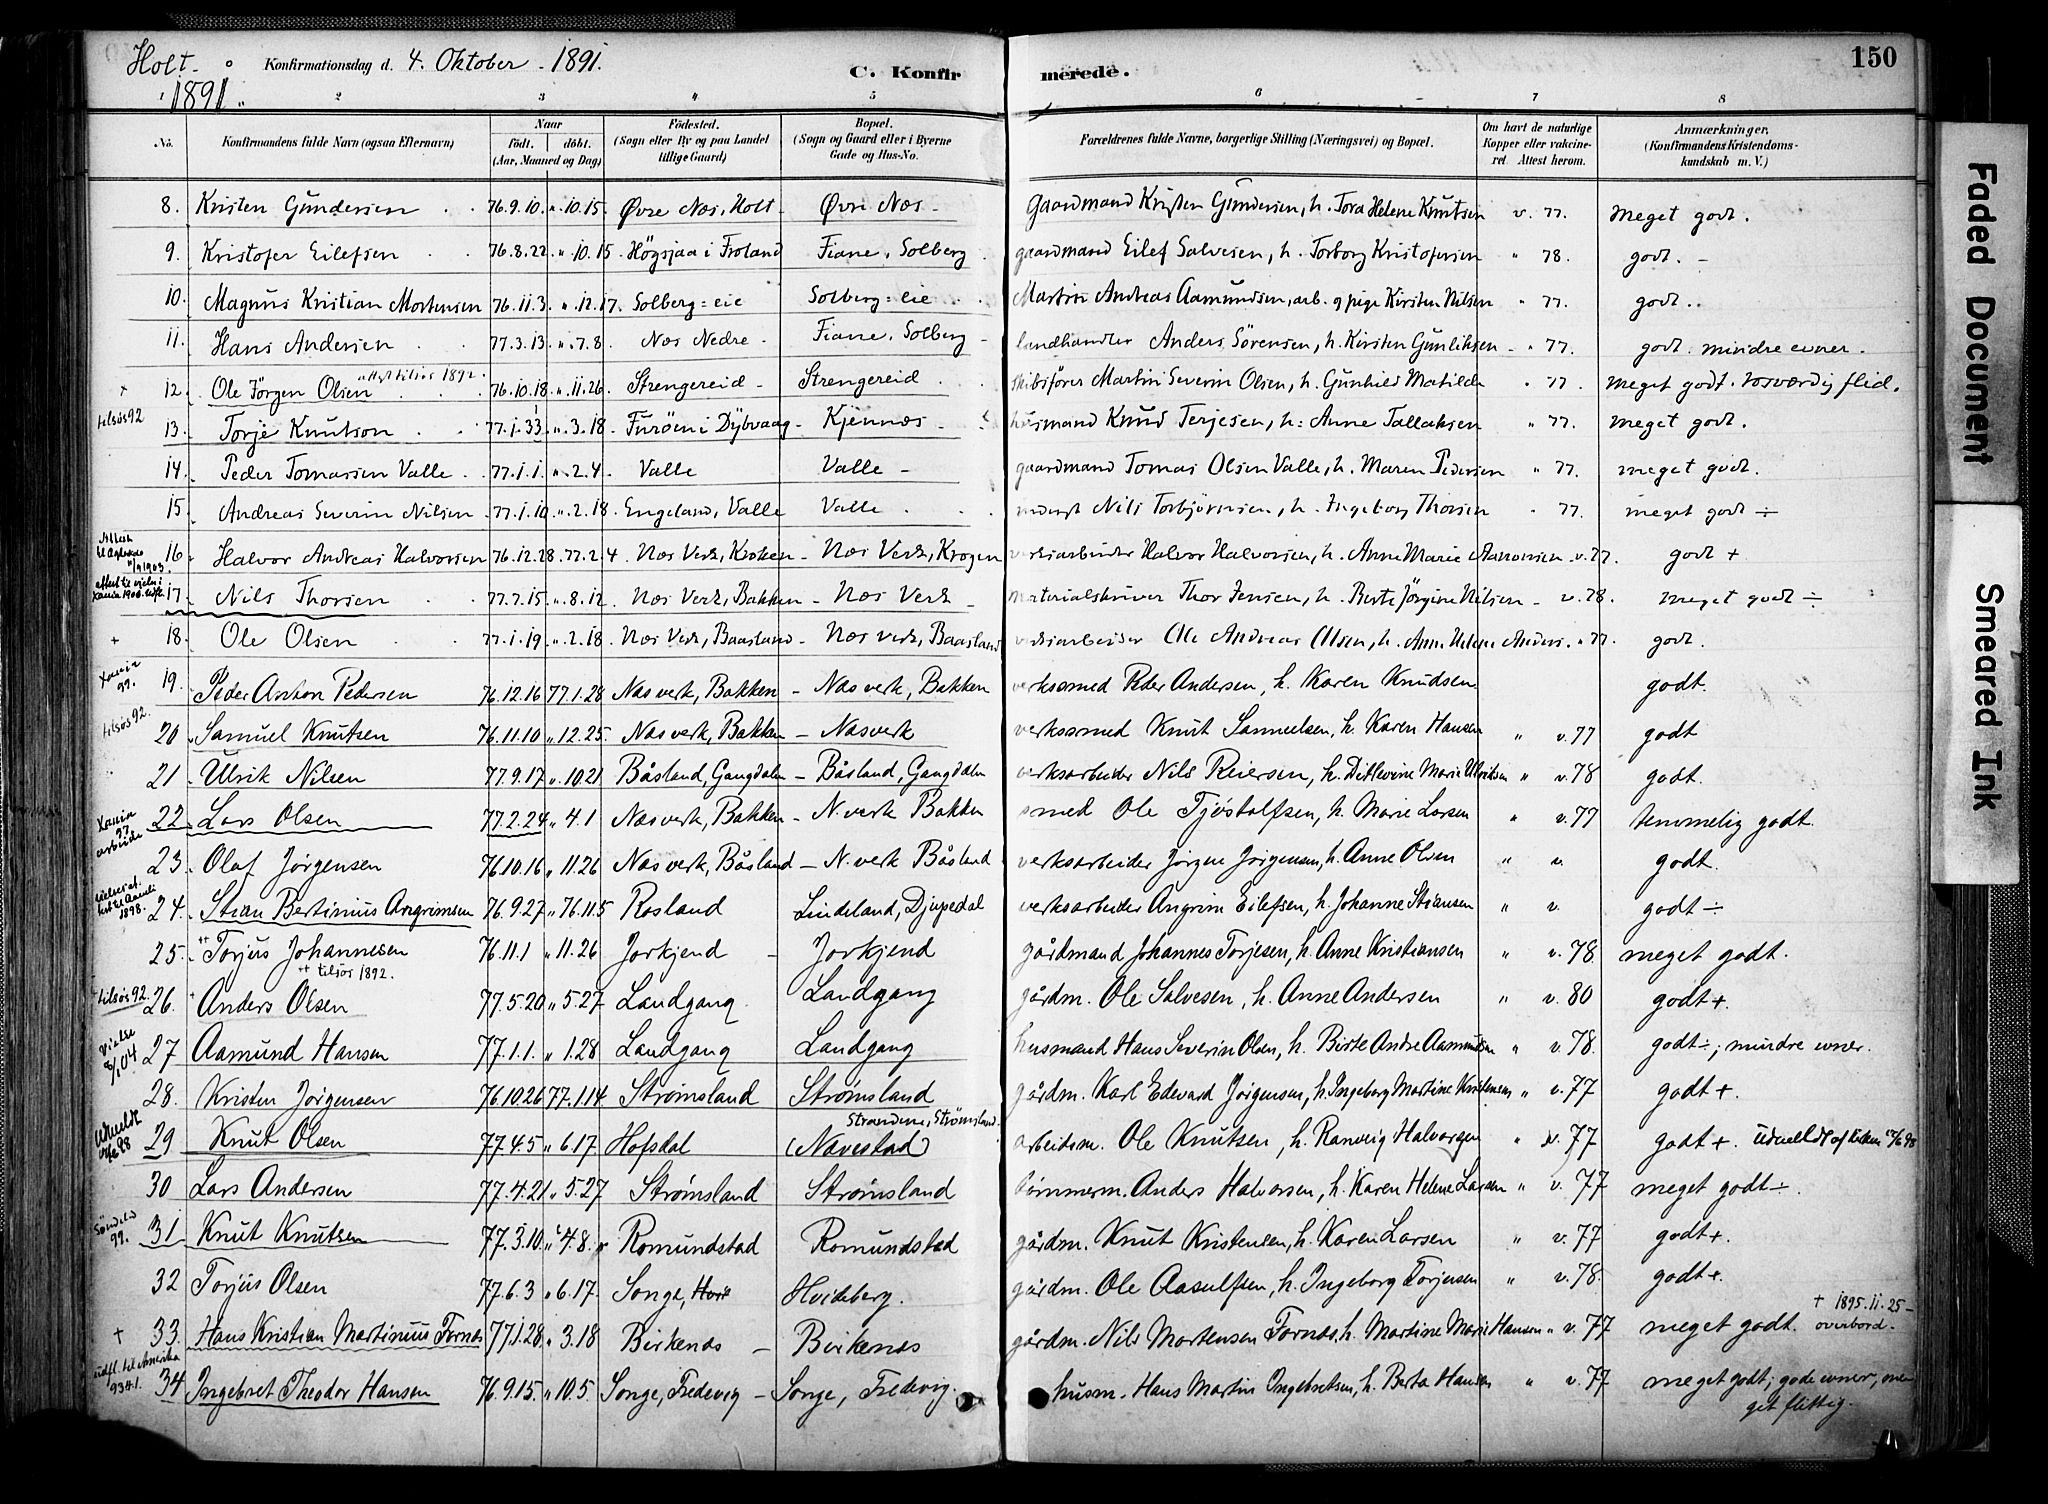 Holt. Konfirmationsdag d. 4. Oktober 1891. C. Konfirmerede. 150
1891.
1 2 3 4 5 6 7 8
No. Konfirmandens fulde Navn (ogsaa Efternavn) Naar født. døbt. (Aar, Maaned og Dag) Fødested. (Sogn eller By og paa Landet tillige Gaard) Bopæl. (Sogn og Gaard eller i Byerne Gade og Hus-No. Forældrenes fulde Navne, borgerlige Stilling (Næringsvei) og Bopæl. Om havt de naturlige Kopper eller vakcineret. Attest herom. Anmærkninger. (Konfirmandens Kristendomskundskab m. V.)
8. Kristen Gundersen 76.9.10. „ 10.15. Øvre Næs, Holt - Øvre Næs - Gaardmand Kristen Gundersen, h. Tora Helene Knutsen v. 77. meget godt.
9. Kristofer Eilefsen 76.8.22 „ 10.15 Högsjaa i Froland Fiane, Solberg gaardmand Eilef Salvesen, h. Torborg Kristofersen „ 78. godt. -
10. Magnus Kristian Mortensen 76.11.3. „ 12.17. Solberg=eie Solberg=eie Martin Andreas Aamundsen, arb. og pige Kirsten Nilsen „ 77. godt..
11. Hans Andersen 77.3.13. „ 7.8. Næs Nedre - Fiane, Solberg - landhandler Anders Sörensen, h. Kirsten Gunliksen - „ 77. godt. mindre evner.
+ 12. Ole Jörgen Olsen attest tilsøs 1892. 76.10.18 „ 11.26. Strengereid - Strengereid skibsfører Martin Severin Olsen, h. Gunhild Matilde „ 77. meget godt. rosværdig flid.
tilsøs 92 13. Torje Knutson 77.1.33. „ 3.18. Furöen i Dybvaag - Kjennæs - husmand Knud Terjesen, h: Anne Tallaksen „ 77. meget godt.
14. Peder Tomassen Valle 77.1.1. „ 2.4. Valle Valle - gaardmand Tomas Olsen Valle, h. Maren Pedersen „ 77. meget godt.
15. Andreas Severin Nilsen 77.1.10. „ 2.18. Engeland, Valle Valle Nils Torbjörnsen, h. Ingeborg Thorsen „ 77. meget godt ÷
16. Halvor Andreas Halvorsen 76.12.28. 77.2.4. Næs Verk, Kroken - Næs Verk, Krogen verksarbeider Halvor Halvorsen, h. Anne Marie Aanonsen v. 77. godt +
17. Nils Thorsen 77.7.15. „ 8.12. Næs Verk, Bakken - Næs Verk - materialskriver Thor Jensen, h. Berte Jörgine Nilsen - v. 78. meget godt ÷
+ 18. Ole Olsen 77.1.19. „ 2.18. Næs Verk, Baasland - Næs verk, Baasland verksarbeider Ole Andreas Olsen, h. Anne Helene Anders. „ 77. godt.
Xania 99. 19. Peder Anton Pedersen 76.12.16 77.1.28 Næs verk, Bakken - Næs verk, Bakken verkssmed Peder Andersen, h. Karen Knudsen. godt.
tilsøs 92. 20. Samuel Knutsen 76.11.10 „ 12.25. Næs verk, Bakken - Næsverk verkssmed Knut Samuelsen, h. Karen Hansen „ v. 77 godt
21. Ulrik Nilsen 77.9.17 „ 10.21 Båsland, Gangdalen - Båsland, Gangdalen verksarbeider Nils Reiersen, h. Ditlevine Marie Ulriksen „ v. 78 godt.
Xania 97. arbeide 22. Lars Olsen 77.2.24 „ 4.1 Næs verk, Bakken - N. verk Bakken smed Ole Tjöstolfsen, h. Marie Larsen „ v. 77 temmelig godt.
23. Olaf Jørgensen 76.10.16 „ 11.26 Næs verk, Båsland - N. verk Båsland verksarbeider Jörgen Jørgensen, h. Anne Olsen „ v. godt.
1898. 24. Stian Bertinius Angrimsen 76.9.27 „ 76.11.5 Rosland Lindeland, Djupedal verksarbeider Angrim Eilefsen, h. Johanne Stiansen „ v. godt ÷
25. Torjus Johannesen 76.11.1 „ 11.26 Jorkjend - Jorkjend gårdmand Johannes Torjesen, h. Anne Kristiansen „ v. 78 meget godt.
tilsøs 1892.
tilsøs 92. 26. Anders Olsen 77.5.20 „ 5.27 Landgang Landgang gårdm. Ole Salvesen, h. Anne Andersen „ v. 80 godt +.
vielse 3/1 04 27 Aamund Hansen 77.1.1. „ 1.28 Landgang Landgang husmand Hans Severin Olsen, h. Birte Andrea Aamundsen „ v. 78. godt ÷; mindre evner.
28. Kristen Jørgensen 76.10.26 77.1.14 Strømsland Strømsland gårdm. Karl Edevard Jørgensen, h. Ingeborg Martine Kristensen „ v. 77 godt +.
29 Knut Olsen 77.4.5 „ 6.17 Hofsdal Strandene, Strømsland (Navestad) arbeidsm. Ole Knutsen, h. Ranveig Halvorsen „ v. 77 godt +. udmeldt af kirken
30 Lars Andersen 77.4.21 „ 5.27 Strømsland Strømsland tømmerm. Anders Halvorsen, h. Karen Helene Larsen „ v. 77 meget godt ÷.
Söndeled 99. 31. Knut Knutsen 77.3.10 „ 4.8. Romundstad Romundstad gårdm. Knut Kristensen, h. Karen Larsen „ v. 77 godt +.
32 Torjus Olsen 77.6.3 „ 6.17. Songe, Hvide Hvideberg. gårdm. Ole Aasulfsen, h. Ingeborg Torjusen „ v. 78. godt +.
+ 33. Hans Kristian Martinius Tornæs 77.1.28 „ 3.18 Birkenæs - Birkenæs gårdm. Nils Mortensen Tornæs, h. Martine Marie Hansen „ v. 77 meget godt. + 1895.11.25 - overbord.
udfl. til Amerika 93 4.1. 34 Ingebret Theodor Hansen 76.9.15. „ 10.5 Songe, Fredevig - Songe, Fredevig. husm. Hans Martin Ingebretsen, h. Berta Hansen „ v. 77 meget godt; gode evner, me-
get flittig.
Faded Document
Smeared Ink